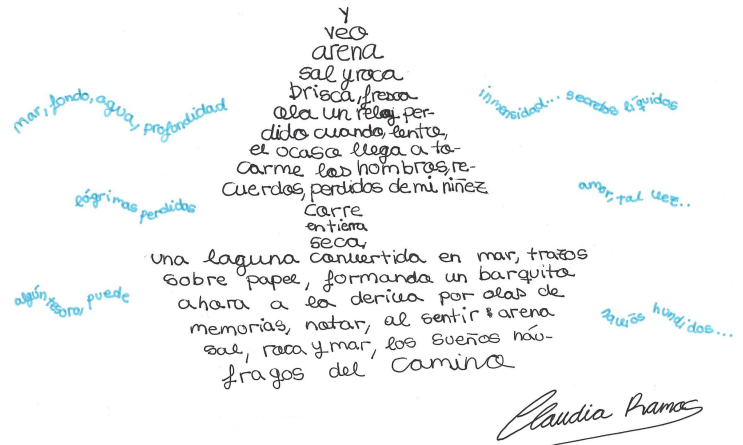 y
veo
arena
sal y roca
brisca, fresca
ola un reloj per-
dido cuando, lento,
el ocaso llega a to-
carme los hombros, re-
cuerdos, perdidos de mi niñez
corre
en tierra
seca,
una laguna convertida en mar, trazos
sobre papel, formando un barquito
ahora a la deriva por olas de
memorias, notar, al sentir arena
sal, roca y mar, los sueños náu-
fragos del camino
mar, fondo, agua, profundidad
lágrimas perdidas
algún tesoro, puede
inmensidad... secretos líquidos
amor, tal vez..
navíos hundidos...
Claudia Ramos